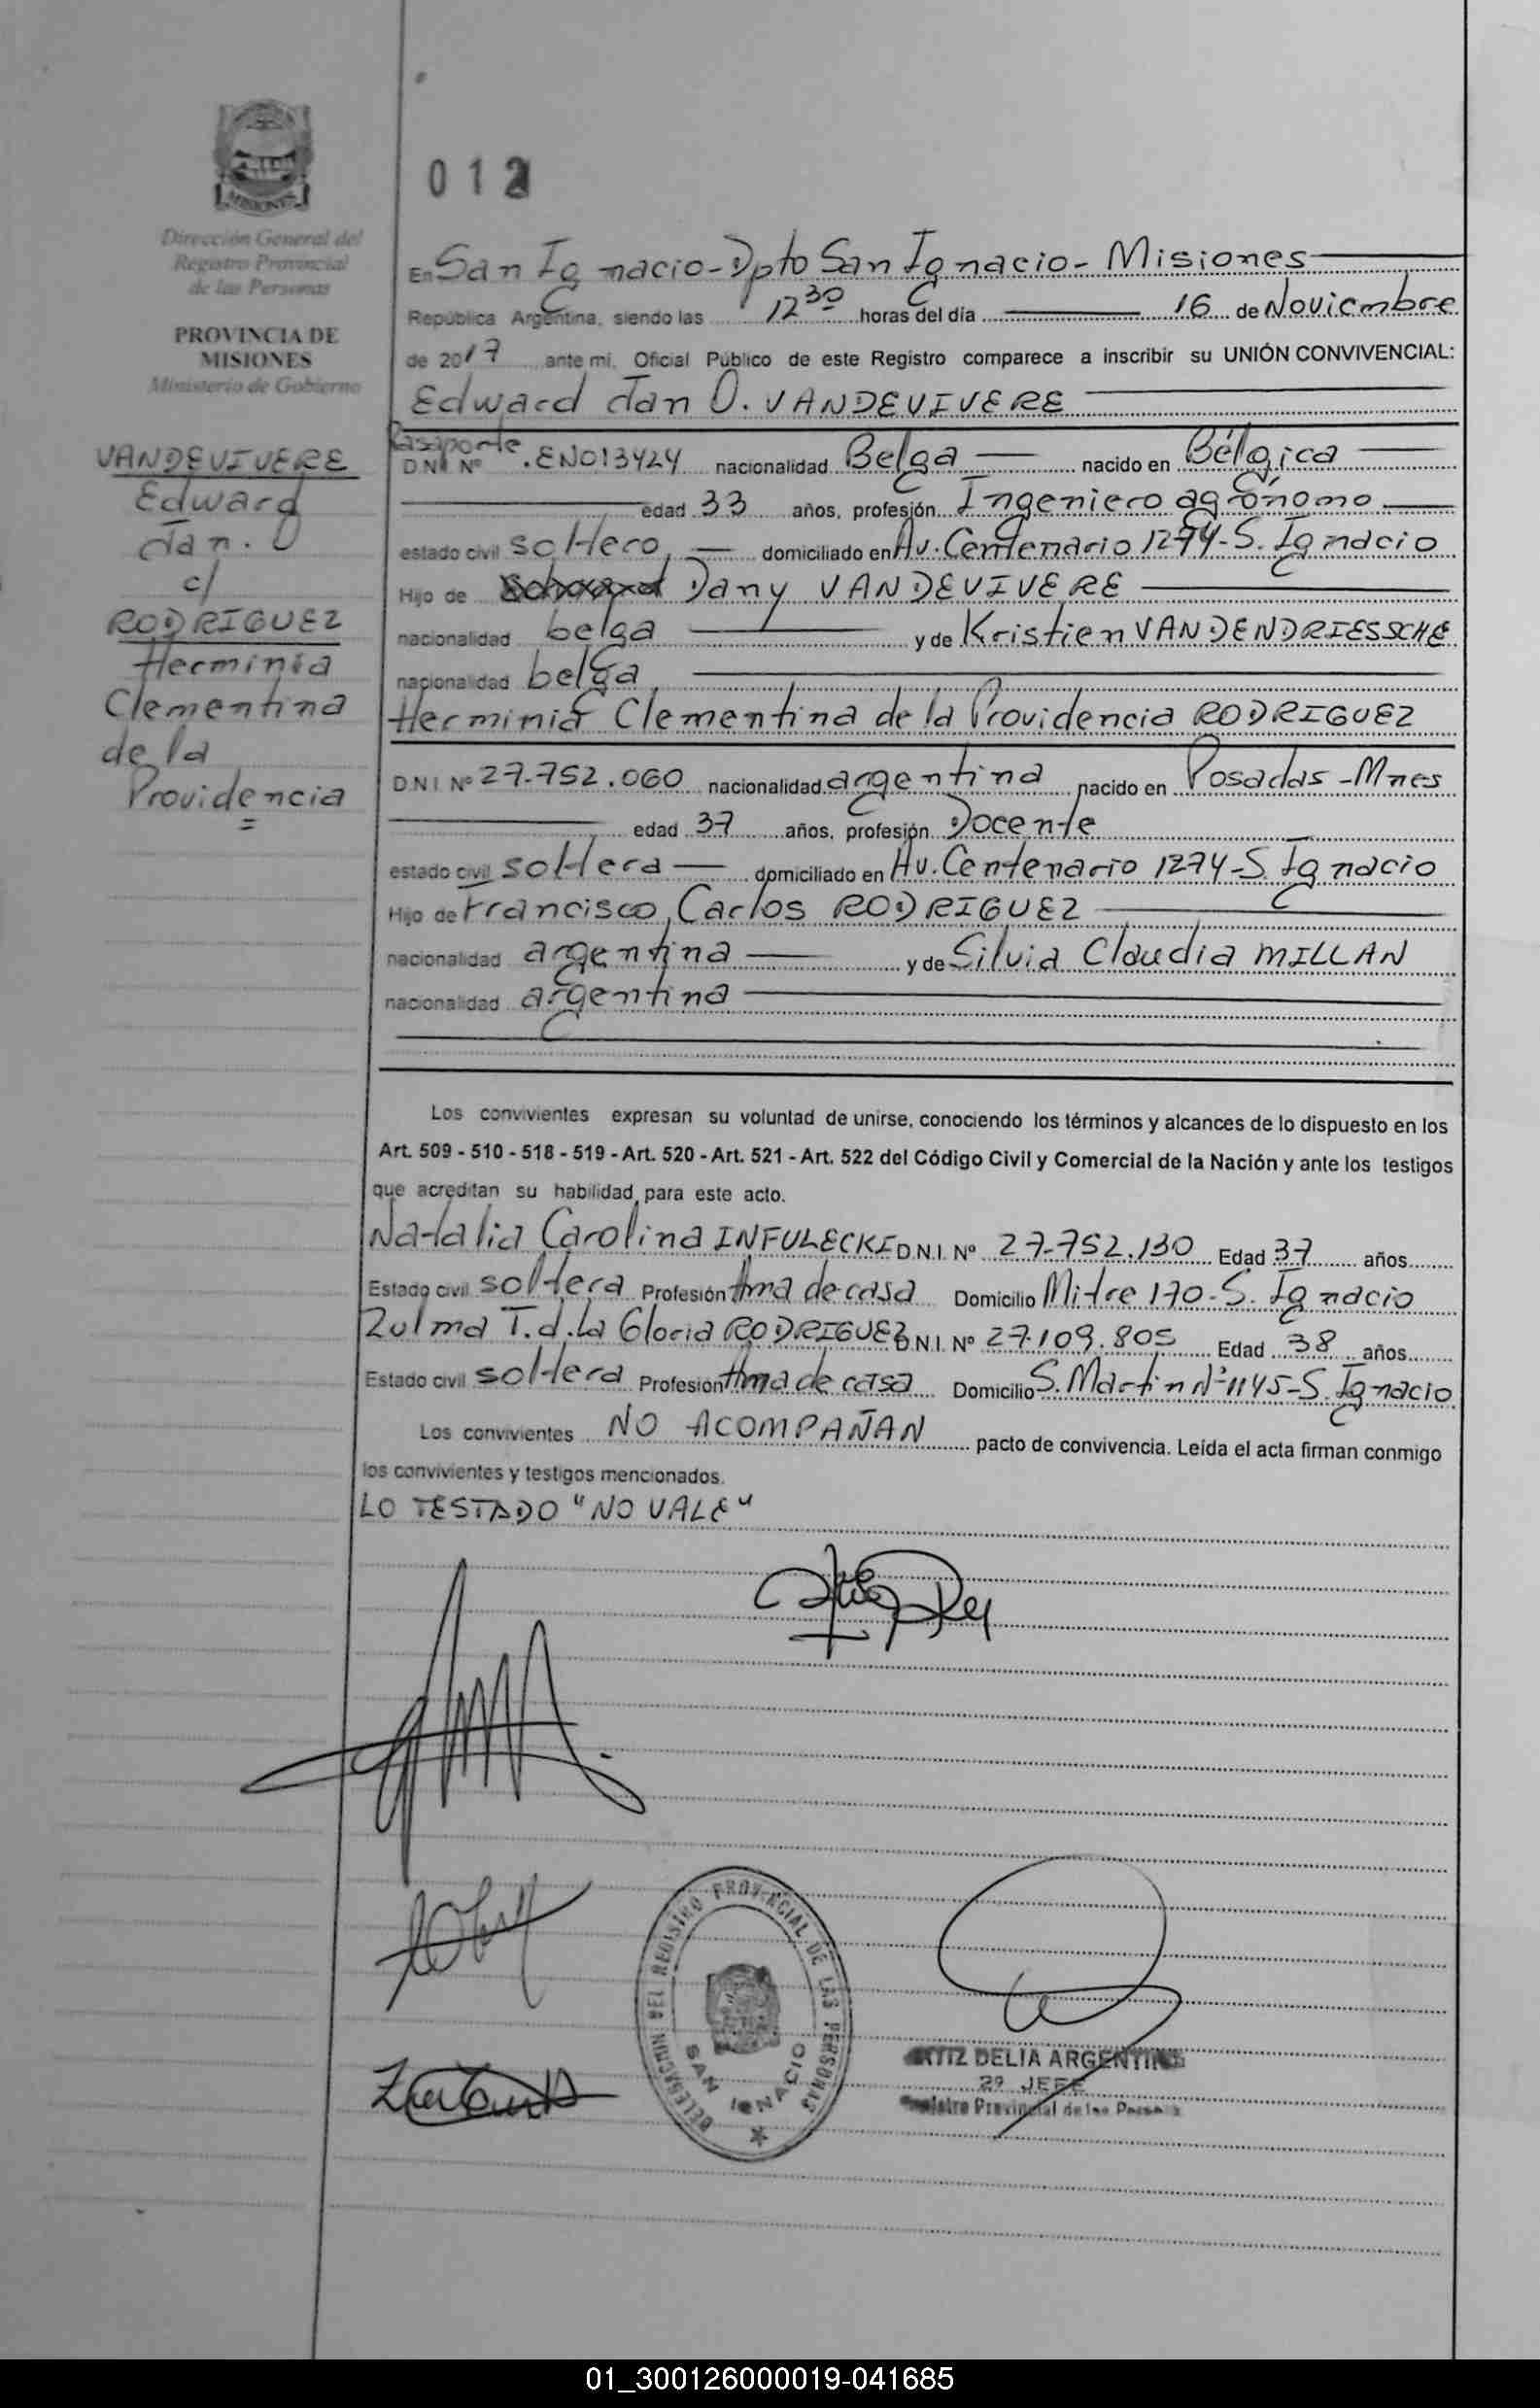 MISIONES
Dirección General del
Registro Provincial
de las Personas
PROVINCIA DE
MISIONES
Ministerio de Gobierno
VANDEVIVERE
Edward
Jan. O
c/
RODRIGUEZ
Herminia
Clementina
de la
Providencia
012
En San Ignacio - Dpto San Ignacio - Misiones
República Argentina, siendo las 12 30 horas del día 16 de Noviembre
de 2017 ante mi, Oficial Público de este Registro comparece a inscribir su UNIÓN CONVIVENCIAL:
Edward Jan O. VANDEVIVERE
Pasaporte
D.N.I. Nº .EN013424 nacionalidad Belga nacido en Bélgica
edad 33 años, profesión Ingeniero agrónomo
estado civil soltero domiciliado en Av. Centenario 1274-S. Ignacio
Hijo de Dany VANDEVIVERE
nacionalidad belga y de Kristien VANDENDRIESSCHE
nacionalidad belga
Herminia Clementina de la Providencia RODRIGUEZ
D.N.I. Nº 27.752.060 nacionalidad argentina nacido en Posadas-Mnes
edad 37 años, profesión Docente
estado civil soltera domiciliado en Av. Centenario 1274-S. Ignacio
Hijo de Francisco Carlos RODRIGUEZ
nacionalidad argentina y de Silvia Claudia MILLAN
nacionalidad argentina
Los convivientes expresan su voluntad de unirse, conociendo los términos y alcances de lo dispuesto en los
Art. 509 - 510 - 518 - 519 - Art. 520 - Art. 521 - Art. 522 del Código Civil y Comercial de la Nación y ante los testigos
que acreditan su habilidad para este acto.
Natalia Carolina INFULECKI D.N.I. Nº 27.752.130 Edad 37 años
Estado civil soltera Profesión Ama de casa Domicilio Mitre 170-S. Ignacio
Zulma T.d.la Gloria RODRIGUEZ D.N.I. Nº 27.109.805 Edad 38 años
Estado civil soltera Profesión Ama de casa Domicilio S. Martin Nº 1145-S. Ignacio
Los convivientes NO ACOMPAÑAN pacto de convivencia. Leída el acta firman conmigo
los convivientes y testigos mencionados.
LO TESTADO "NO VALE"
DELEGACION DEL REGISTRO PROVINCIAL DE LAS PERSONAS
SAN IGNACIO
DELIA ARGENTINA
2º JEFE
Registro Provincial de las Personas
01_300126000019-041685